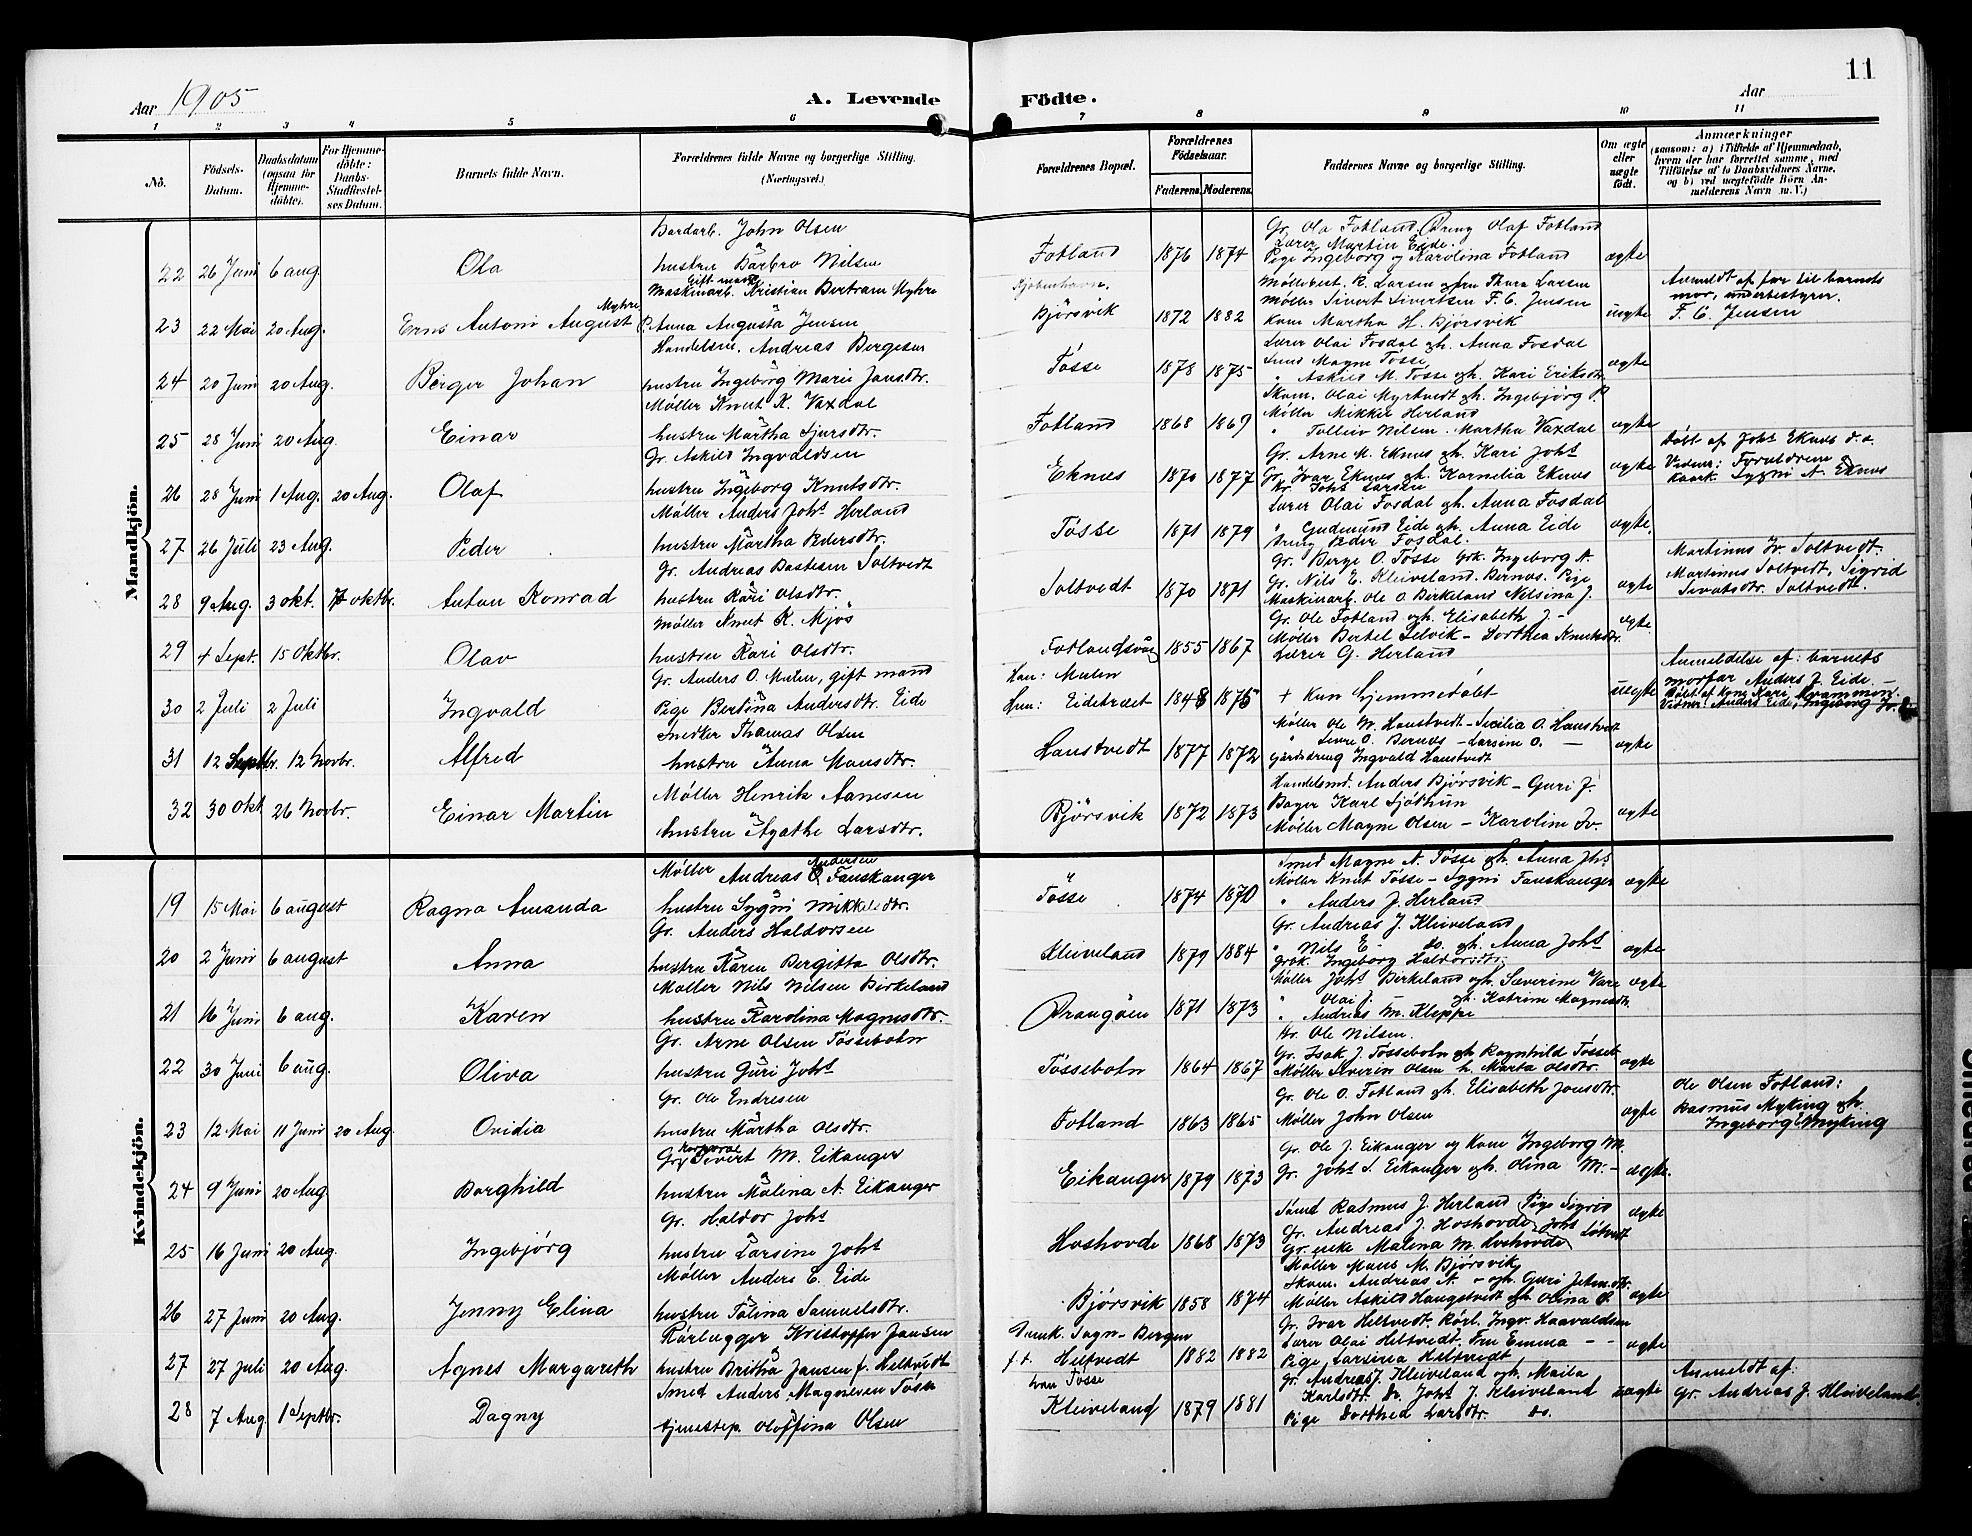 11
Aar 1905
A. Levende Födte.
Aar
1 2 3 4 5 6 7 8 9 10 11
No.
Födsels-Datum.
Daabsdatum (ogsaa for Hjemme-döbte).
For Hjemme-döbte: Daabs-Stadfæstel-ses Datum.
Barnets fulde Navn.
Forældrenes fulde Navne og borgerlige Stilling. (Næringsvei.)
Forældrenes Bopæl.
Forældrenes Födselsaar.
Faderens. Moderens.
Faddernes Navne og borgerlige Stilling.
Om ægte eller uægte födt.
Anmærkninger
(saasom: a) i Tilfælde af Hjemmedaab, hvem der har forrettet samme, med Tilföielse af to Daabsvidners Navne, og b) ved uægtefödte Börn An-melderens Navn m. V.)
Mandkjön.
Bordarb. John Olsen
22 26 Juni 6 aug. Ola hustru Barbro Nilsen Fotland 1876 1874 Gr. Ola Fotland, Dreng Olaf Fotland
Lærer Martin Eide.
Pige Ingeborg og Karolina Fotland ægte
Gift mand
Maskinarb. Kristian Bertram Myhre Kjøbenhavn.
23 22 Mai 20 Aug. Erns Antoni August Myhre P. Anna Augusta Jensen Bjørsvik 1872 1882 Møllebest. R. Larsen og fru Thora Larsen
Møller Sivert Sivertsen F. C. Jensen
Kone Martha H. Bjørsvik uægte Anmeldt af far til barnets
mor, underbestyrer.
F. C. Jensen
Handelsm. Andreas Bergesen
24 20 Juni 20 Aug. Berger Johan hustru Ingeborg Marie Jonsdtr. Tøsse 1878 1875 Lærer Olai Fosdal gh. Anna Fosdal
Smed Magne Tøsse
" Askild M. Tøsse gh. Kari Eriksdtr. ægte
Møller Knut K. Vaxdal
25 28 Juni 20 Aug. Einar hustru Martha Sjursdtr. Fotland 1868 1869 Skom. Olai Myrtvedt gh. Ingebjørg P.
Møller Mikkel Herland
" Tolleiv Nilsen. Martha Vaxdal ægte
Gr. Askild Ingvaldsen
26 28 Juni 1 Aug. 20 Aug. Olaf hustru Ingeborg Knutsdtr. Eknes 1870 1877 Gr. Arne M. Eknes gh. Kari Johs
Gr. Ivar Eknes gh. Kornelia Eknes
Hr. Johs Larsen ægte Døbt af Johs Eknes d.e.
Vidner: Forældrene &
Kaark. Sygni A. Eknes
Møller Anders Johs Herland
27 26 Juli 23 Aug. Peder hustru Martha Pedersdtr. Tøsse 1871 1879 Lærer Olai Fosdal gh. Anna Fosdal
" Gudmund Eide gh. Anna Eide
Dreng Peder Fosdal. ægte
Gr. Andreas Bastesen Soltvedt
28 9 Aug. 3 okt. 7 oktbr. Anton Konrad hustru Kari Olsdtr. Soltvedt 1870 1871 Gr. Berge O. Tøsse Grk. Ingeborg A.
Gr. Nils E. Kleiveland. Bernes. Pige
Maskinarb. Ole O. Birkeland Nilsina J. ægte Martinus Iv. Soltvedt.
Martines Soltvedt, Sigrid
Sivatsdtr. Soltvedt.
Møller Knut K. Mjøs
29 4 Sept. 15 Oktbr. Olav hustru Kari Olsdtr. Fotlandsvåg 1855 1867 Gr. Ole Fotland gh. Elisabeth J. -
Møller Bertel Selvik - Dorthea Knutsdtr.
Lærer G. Herland ægte.
Gr. Anders O. Mulen, gift mand Han: Mulen
30 2 Juli 2 Juli Ingvald Pige Bertina Andersdtr. Eide Hun: Eidetræet 1848 1875 + Kun hjemmedøbt uægte Anmeldelse af: barnets
morfar Anders J. Eide. -
Døbt af Kone Kari Kvammen.
Vidner: Anders Eide, Ingeborg
Snedker Thomas Olsen
31 12 Septbr. 12 Novbr. Alfred hustru Anna Monsdtr. Haustvedt 1877 1872 Møller Ole N. Haustvedt - Secilia O. Haustvedt
" Sivre O. Bernes - Larsine O. —
Gårdsdreng Ingvald Haustvedt ægte
Møller Henrik Aanesen
32 30 Okt 26 Novbr. Einar Martin hustru Agathe Larsdtr. Bjørsvik 1872 1873 Handelsmd. Anders Bjørsvik - Guri J.
Bager Karl Sjøthun
Møller Magne Olsen - Karoline Iv. ægte
Kvindekjön.
Møller Andreas O. Andersen Fauskanger
19 15 Mai 6 august Ragna Amanda hustru Sygni Mikkelsdtr. Tøsse 1874 1870 Smed Magne A. Tøsse gh. Anna Johs
Møller Knut Tøsse - Sygni Fauskanger
" Anders J. Herland ægte
Gr. Anders Haldorsen
20 2 Juni 6 august Anna hustru Karen Bergitta Olsdtr. Kleiveland 1879 1884 Gr. Andreas J. Kleiveland
" Nils E - do. gh. Anna Johs
Grdk. Ingeborg Haldorsdtr. ægte
Møller Nils Nilsen Birkeland
21 16 Juni 6 aug. Karen hustru Karolina Magnusdtr. Drangøen 1871 1873 Møller Johs Birkeland gh. Severine Vare
" Olai J. — gh. Katrine Magnusdtr.
" Andreas M. Kleppe ægte
Gr. Arne Olsen Tøssebotn
22 30 Juni 6 aug. Oliva hustru Guri Johs Tøssebotn 1864 1867 Hr. Ole Nilsen.
Gr. Isak J. Tøssebotn gh Ragnhild Tøsseb.
Møller Severin Olsen h. Marta Olsdtr. ægte
Gr. Ole Endresen
23 12 Mai 11 Juni 20 Aug. Ovidia hustru Martha Olsdtr. Fotland 1863 1865 Gr. Ole O. Fotland gh. Elisabeth Jonsdtr.
Møller John Olsen ægte Ole Olsen Fotland:
Rasmus Myking gh.
Ingeborg Myking
Gr. Korporal Sivert M. Eikanger
24 9 Juni 20 Aug. Borghild hustru Malina A. Eikanger Eikanger 1879 1873 Gr. Ole J. Eikanger og Kone Ingeborg M.
Gr. Johs S. Eikanger gh. Olina M. - ægte.
Gr. Haldor Johs
25 16 Juni 20 Aug. Ingebjörg hustru Larsine Johs Hoshovde 1868 1873 Smed Rasmus J. Herland Pige Sigrid
Gr. Andreas J. Hoshovde, Johs Løtvedt
Gr. enke Malena M. Hoshovde ægte
Møller Anders C. Eide
26 27 Juni 20 Aug. Jenny Elina hustru Talina Samuelsdtr. Bjørsvik 1858 1874 Møller Mons M. Bjørsvik
Skom. Andreas A. - gh. Guri
Møller Askild Haugstvedt gh. Olina O. ægte
Rørlægger Kristoffer Jansen
27 27 Juli 20 Aug. Agnes Margareth hustru Britha Jansen f. Heltvedt Domk. Sogn - Bergen
f.t. Heltvedt 1882 1882 Gr. Ivar Heltvedt. Rørl. Ingv. Haavaldsen
Lærer Olai Heltvedt. Fru Emma - -
Pige Larsina Heltvedt ægte
Smed Anders Magnesen Tøsse Han Tøsse
28 7 Aug 1 Septbr. Dagny tjenestep. Oloffina Olsen Kleiveland 1879 1881 Gr. Andreas J. Kleiveland gh. Maila
Karlsdtr. Do. Johs J. Kleiveland
Pige Dorthea Larsdtr. do. uægte Anmeldt af:
Gr. Andreas J. Kleiveland.